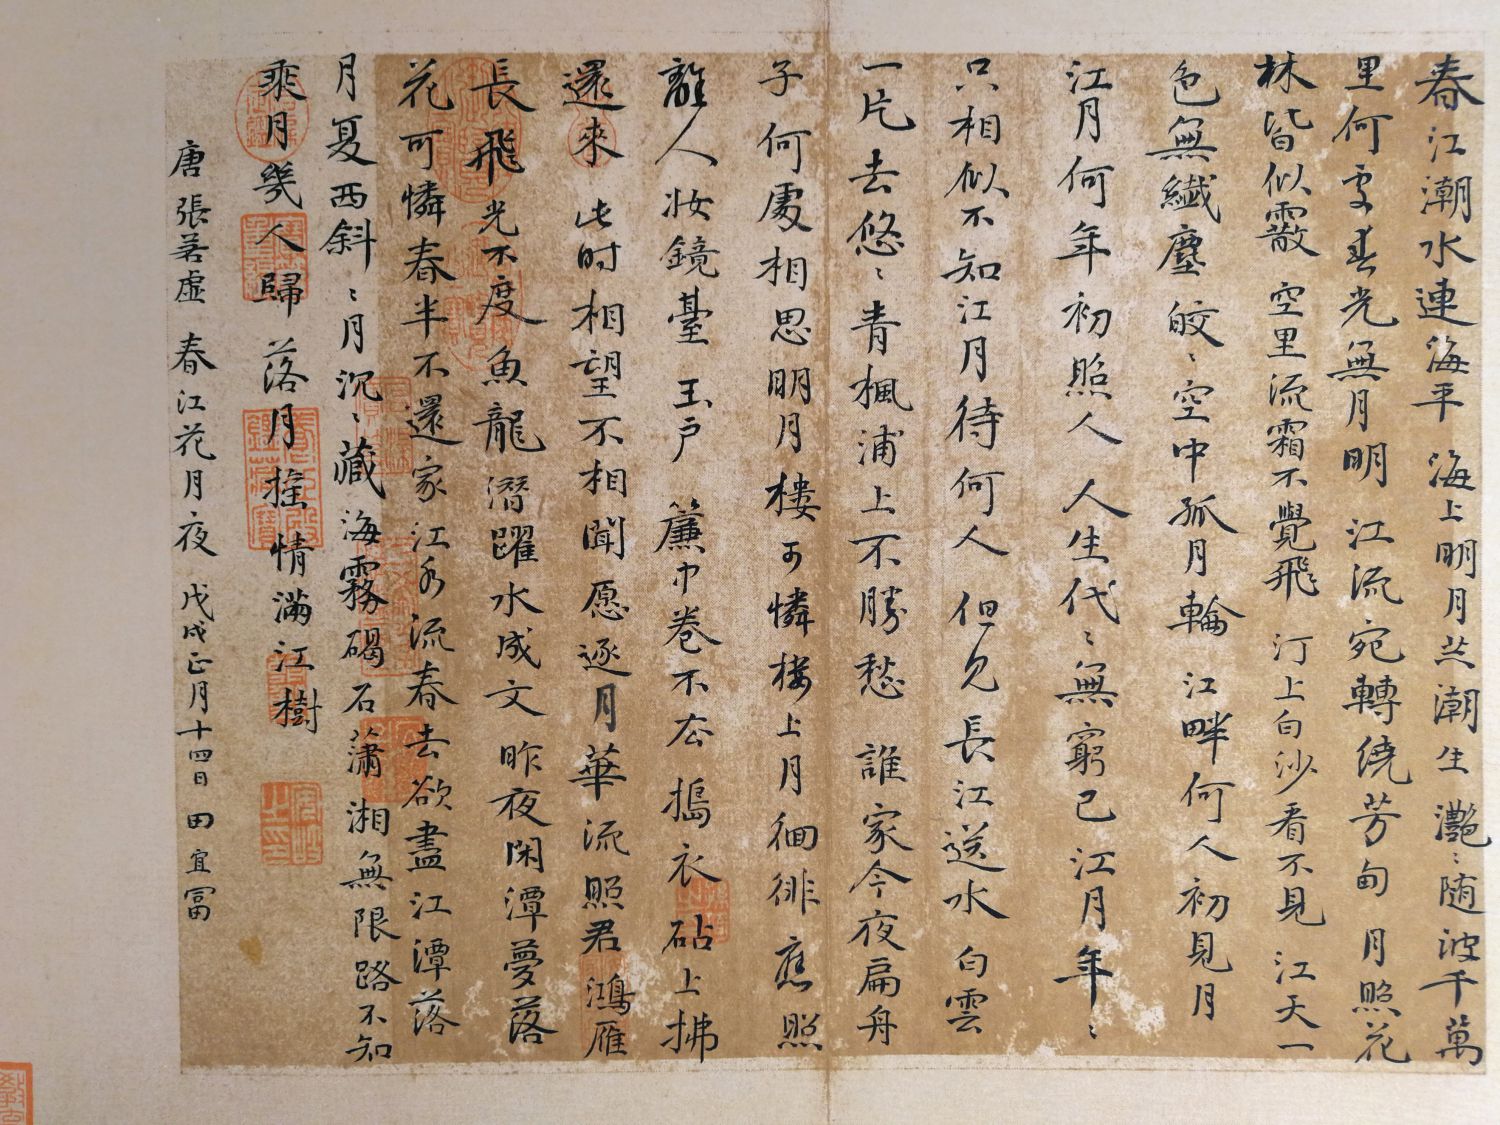 春江潮水連海平 海上明月共潮生 灧〻随波千萬
里何處春光無月明 江流宛轉繞芳甸 月照花
林皆似霰 空里流霜不覺飛 汀上白沙看不見 江天一
色無纖塵 皎〻空中孤月輪 江畔何人初見月
江月何年初照人 人生代〻無窮已 江月年〻
只相似 不知江月待何人 但見長江送水 白雲
一片去悠〻 青楓浦上不勝愁 誰家今夜扁舟
子 何處相思明月樓 可憐樓上月徊徘 應照
離人妝鏡臺 玉戶簾巾卷不去 搗衣砧上拂
還來 此时相望不相聞 愿逐月華流照君 鴻雁
長飛光不度 魚龍潛躍水成文 昨夜閑潭夢落
花 可憐春半不還家 江水流春去欲盡 江潭落
月复西斜 〻月沉〻藏海霧 碣石瀟湘無限路 不知
乘月幾人歸 落月搖情滿江樹
唐 張若虛 春江花月夜 戊戌正月十四日 田宜富